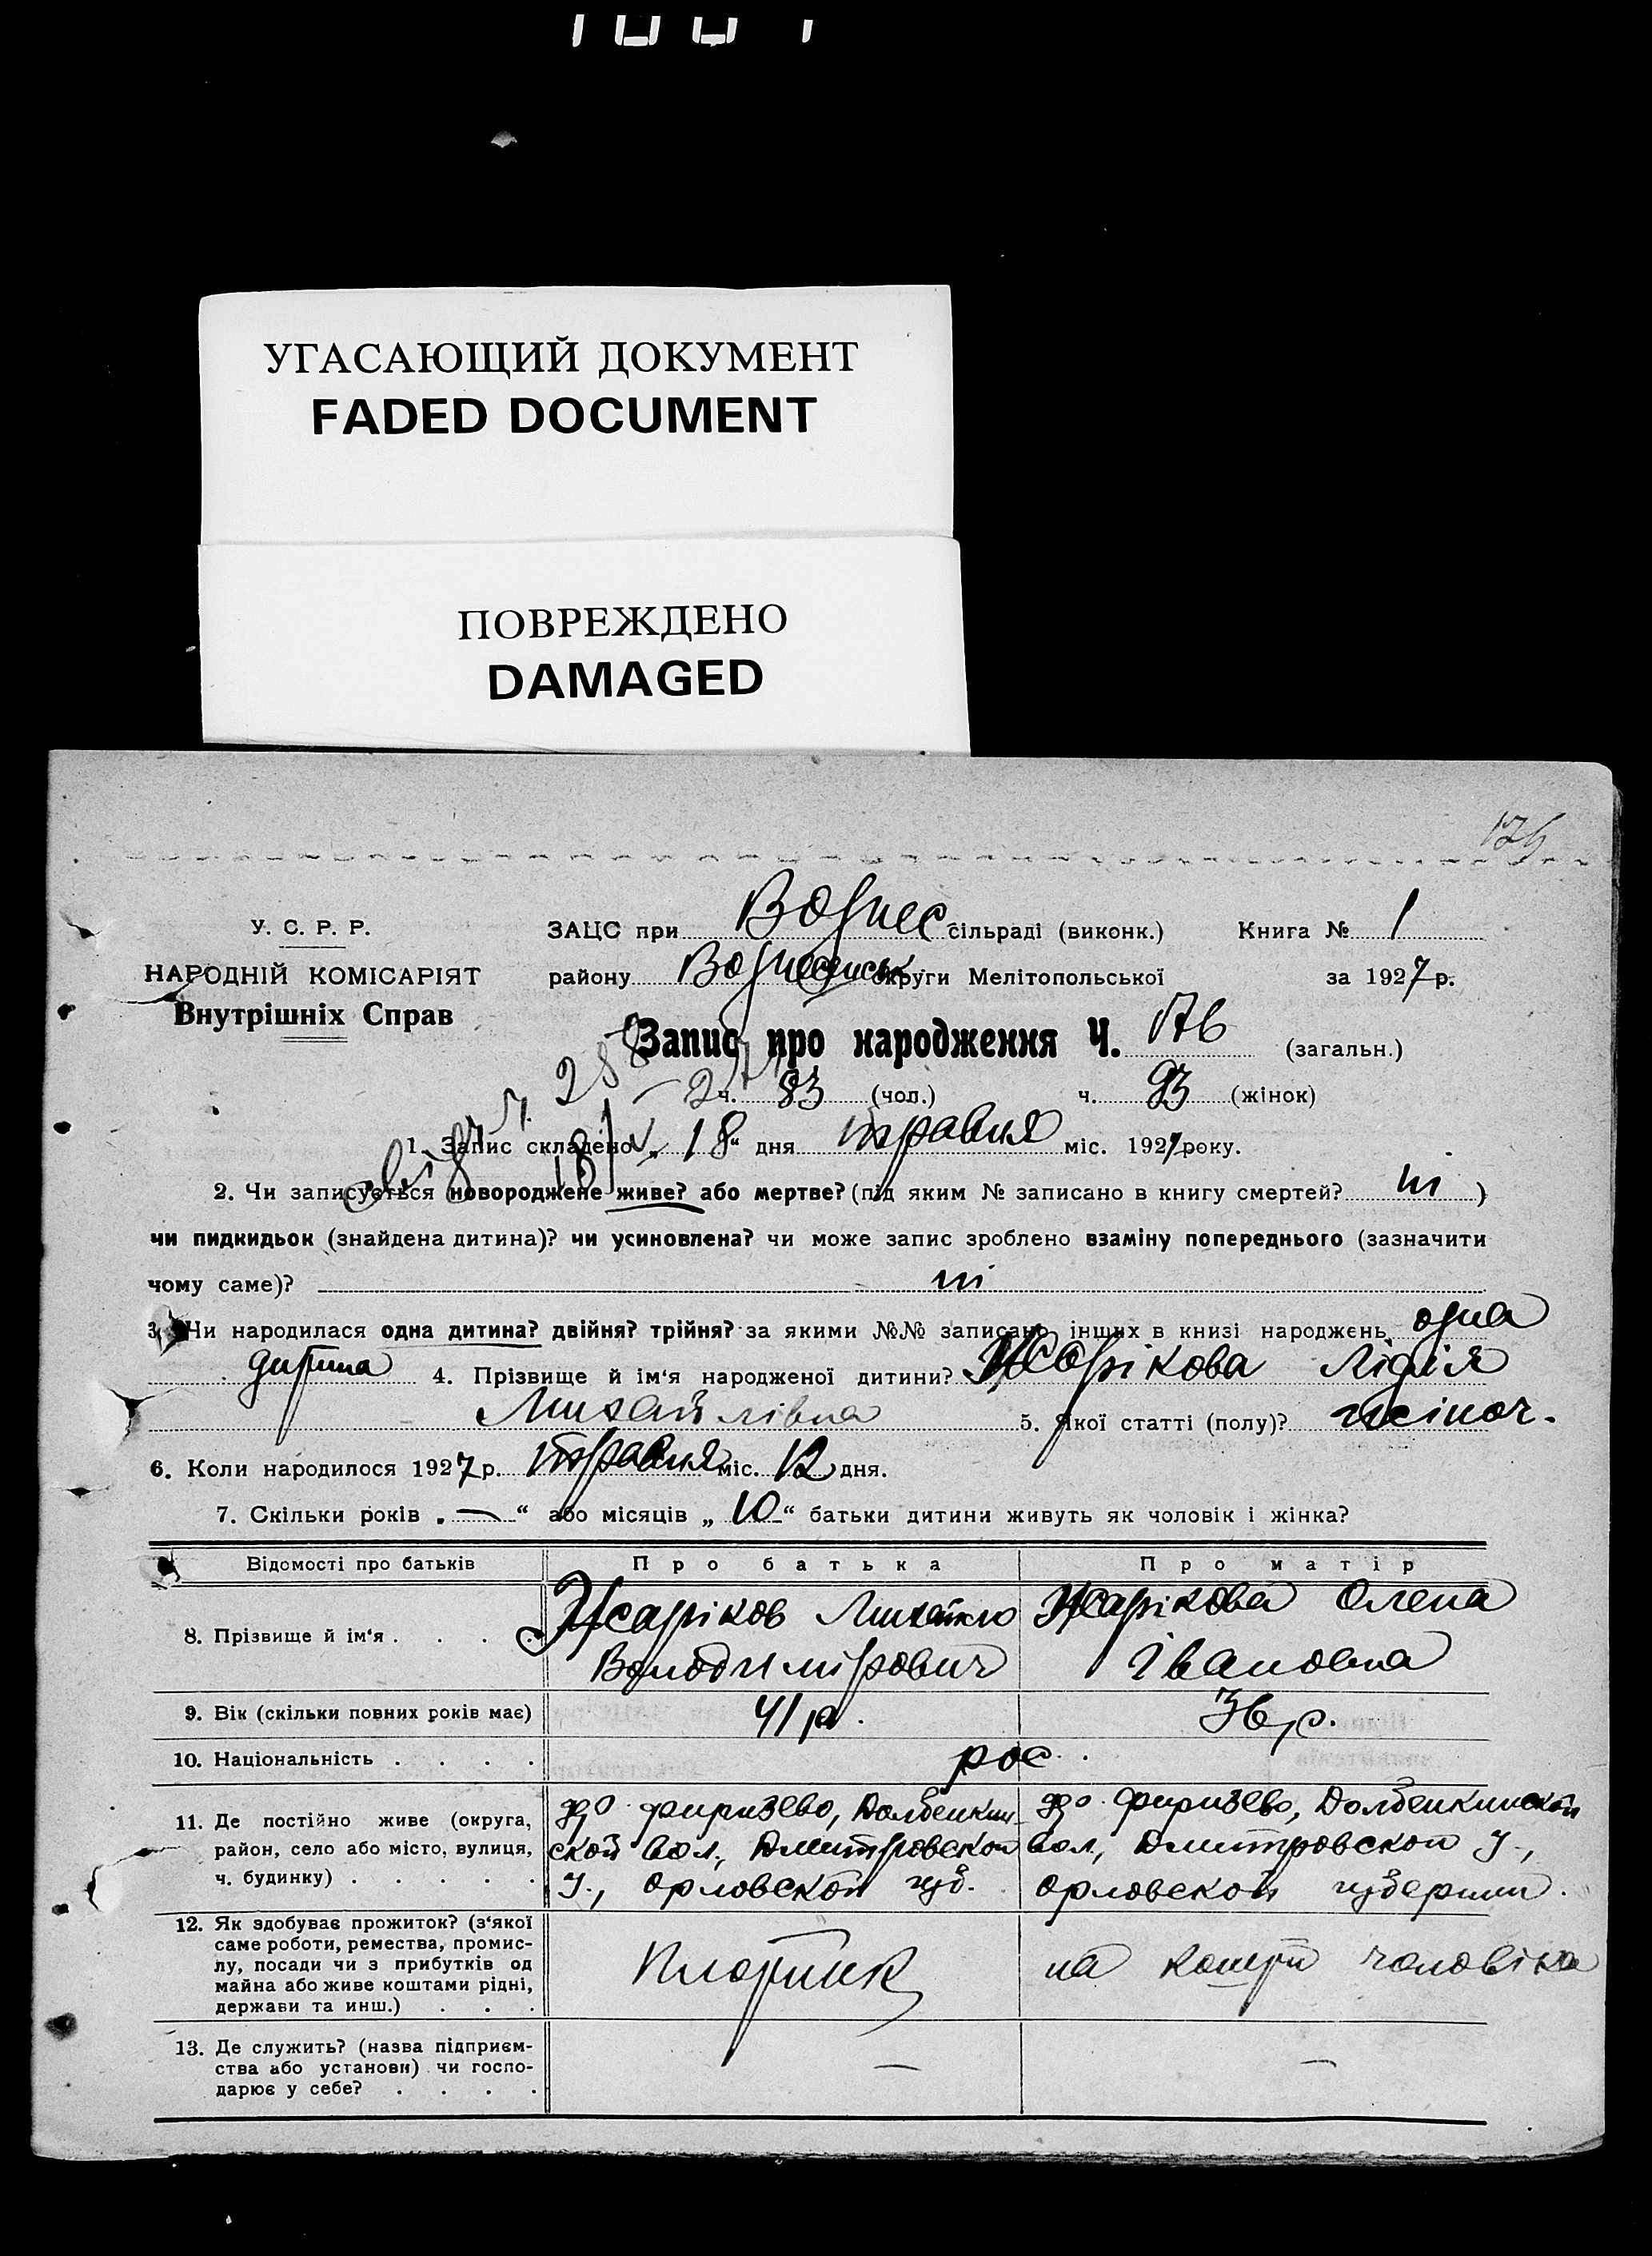 УГАСАЮЩИЙ ДОКУМЕНТ
FADED DOCUMENT
ПОВРЕЖДЕНО
DAMAGED
У. С. Р. Р.
НАРОДНІЙ КОМІСАРІЯТ
Внутрішніх Справ
ЗАЦС при Вознес сільраді (виконк.) Книга № 1
району Вознесенськ округи Мелітопольської за 1927 р.
Запис про народження Ч. 176 (загальн.)
ч. 83 (чол.) ч. 93 (жінок)
1. Запис складено „ 18 “ дня травня міс. 1927 року.
2. Чи записується новороджене живе? або мертве? (під яким № записано в книгу смертей? ні )
чи пидкидьок (знайдена дитина)? чи усиновлена? чи може запис зроблено взаміну попереднього (зазначити
чому саме)? ні
3. Чи народилася одна дитина? двійня? трійня? за якими №№ записано інших в книзі народжень одна
дитина 4. Прізвище й ім‘я народженої дитини? Жарікова Лідія
Михайлівна 5. Якої статті (полу)? жіноч.
6. Коли народилося 1927 р. травня міс. 12 дня.
7. Скільки років „ — “ або місяців „ 10 “ батьки дитини живуть як чоловік і жінка?
Відомості про батьків Про батька Про матір
8. Прізвище й ім‘я . . . . Жаріков Михайло Жарікова Олена
Володимірович Івановна
9. Вік (скільки повних років має) 41 р. 36 р.
10. Національність . . . . рос.
11. Де постійно живе (округа, Фиризево, Долбенкин- Фиризево, Долбенкинской
район, село або місто, вулиця, ской вол., Дмитровской вол., Дмитровской У.,
ч. будинку) . . . . . У., Орловской губ. Орловской губернии.
12. Як здобуває прожиток? (з‘якої
саме роботи, ремества, промис-
лу, посади чи з прибутків од Плотник на кошти чоловіка
майна або живе коштами рідні,
держави та инш.) . . .
13. Де служить? (назва підприєм-
ства або установи) чи госпо- — —
дарює у себе? . . . .